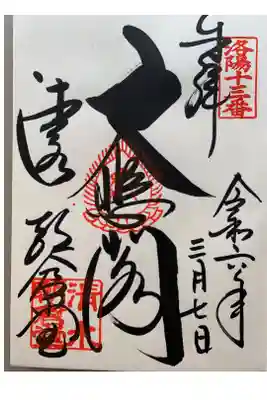 洛陽十三番
奉拝
令和六年
三月七日
大悲閣
清水
朝倉堂